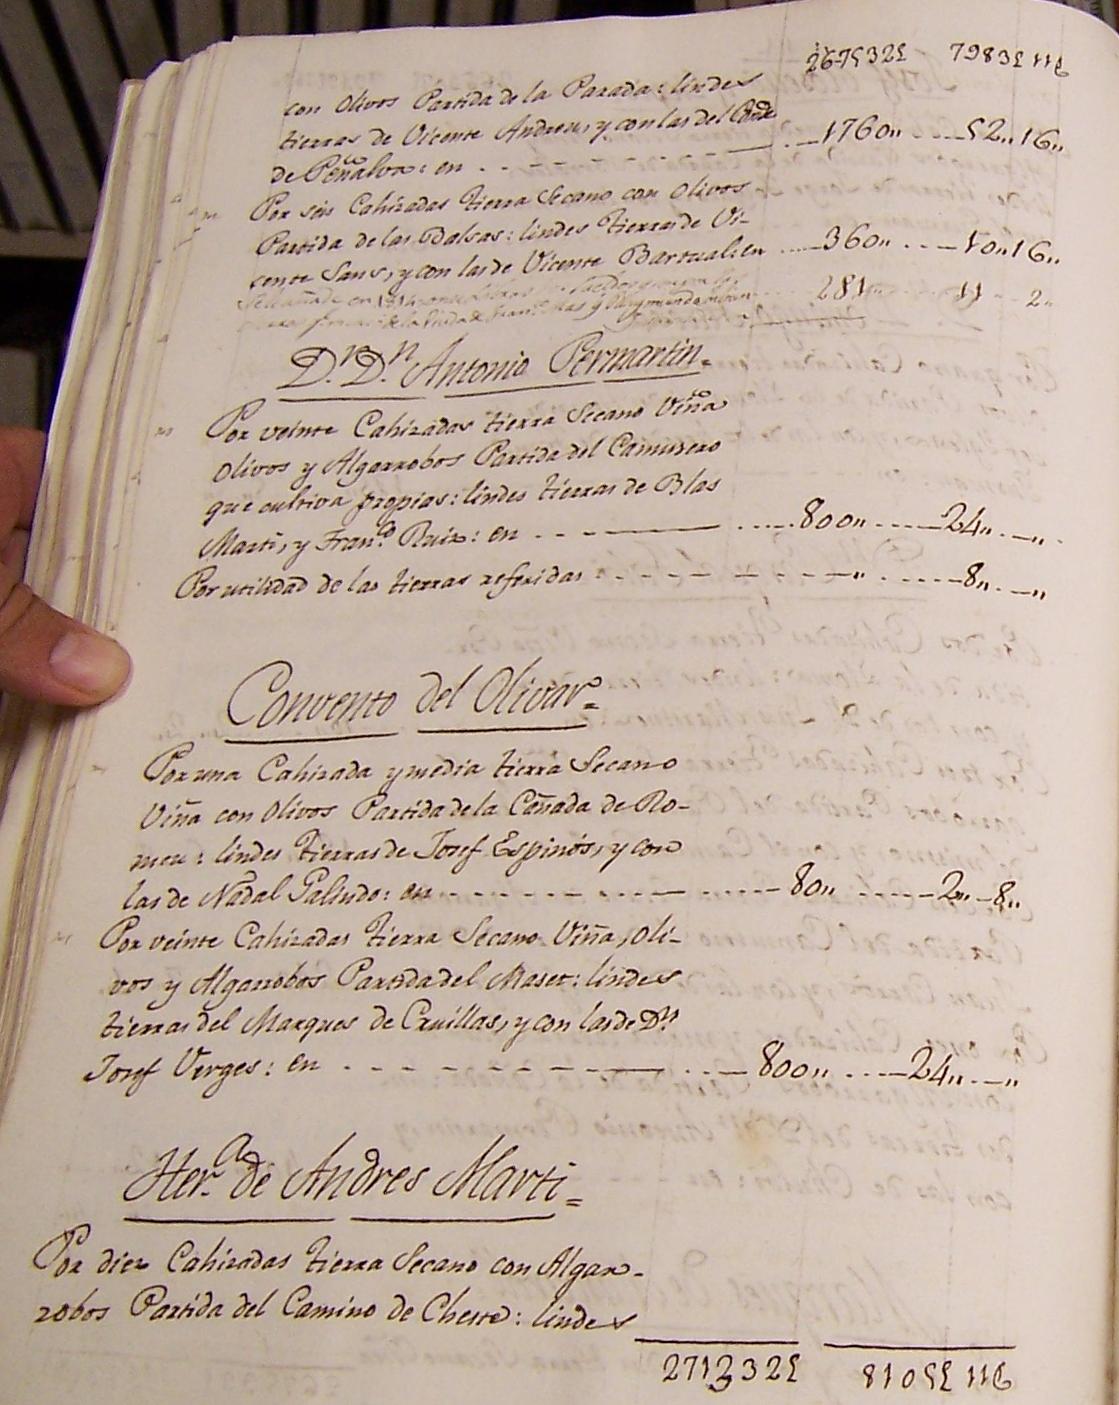 con Olivos Partida de la Parada: lindes
tierras de Vicente Andreu, y con las del Conde
de Peñalva: en . . - - - 1760,, . . . 52,, 16,,
Por seis Cahizadas tierra Secano con Olivos
Partida de las Balsas: lindes tierras de Vi-
cente Sans, y con las de Vicente Bartualien ..... 360,, . . . 10,, 16,,
281,, 11 2,,
D.r D.n Antonio Permartin =
Por veinte Cahizadas tierra Secano Viña
Olivos y Algarrobos Partida del Caminero
que cultiva propias: lindes tierras de Blas
Marti, y Fran.co Ruiz: en . . . - - - 800,, . . . 24,, . - ,,
Por utilidad de las tierras referidas : - - - ,, . . . 8,, . - ,,
Convento del Olivar =
Por una Cahizada y media tierra Secano
Viña con Olivos Partida de la Cañada de Ro-
meu: lindes tierras de Josef Espinós, y con
las de Nadal Galindo: en - - - 80,, . . . 2,, - 8,,
Por veinte Cahizadas tierra Secano Viña, Oli-
vos y Algarrobos Partida del Maset: lindes
tierras del Marques de Cruillas, y con las de D.n
Josef Verges: en . . . - - - 800,, . . . 24,, . - ,,
Her.a de Andres Marti =
Por diez Cahizadas tierra Secano con Algar-
robos Partida del Camino de Cheste: lindes